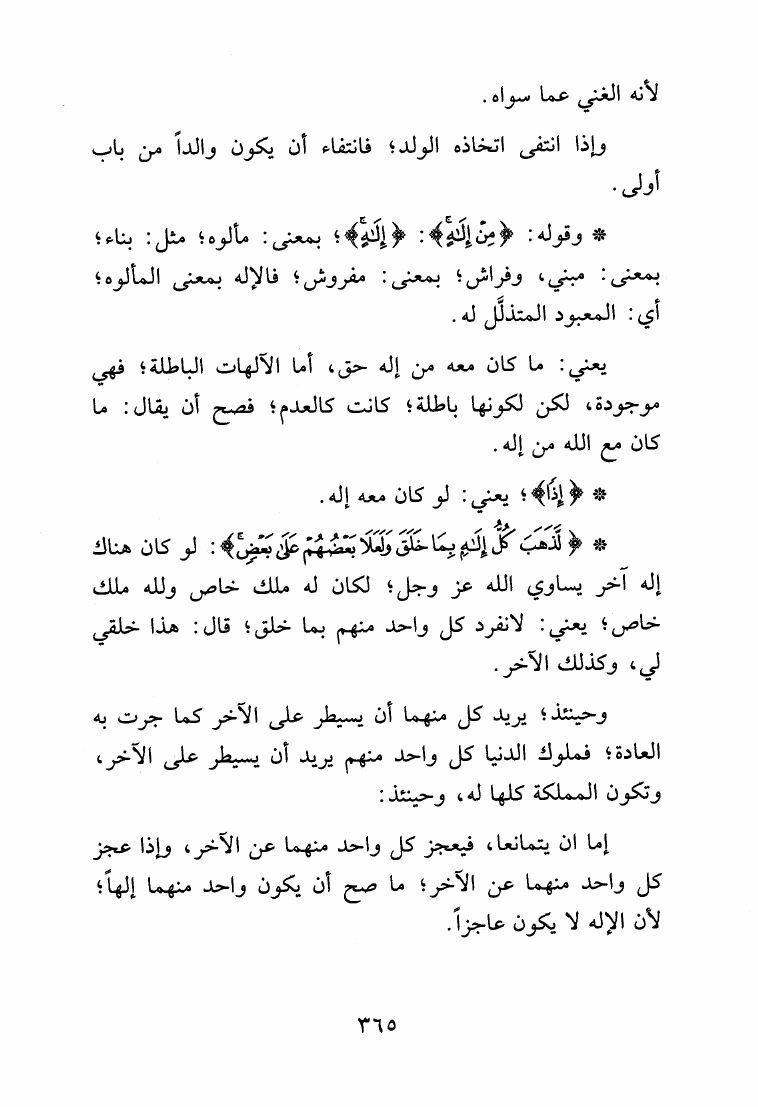 لأنه الغني عما سواه.
وإذا انتفى اتخاذه الولد؛ فانتفاء أن يكون والداً من باب
أولى.
* وقوله: ﴿مِنْ إِلَٰهٍ﴾: ﴿إِلَٰهٍ﴾؛ بمعنى: مألوه؛ مثل: بناء؛
بمعنى: مبني، وفراش؛ بمعنى: مفروش؛ فالإله بمعنى المألوه؛
أي: المعبود المتذلَّل له.
يعني: ما كان معه من إله حق، أما الآلهات الباطلة؛ فهي
موجودة، لكن لكونها باطلة؛ كانت كالعدم؛ فصح أن يقال: ما
كان مع الله من إله.
* ﴿إِذًا﴾؛ يعني: لو كان معه إله.
* ﴿لَّذَهَبَ كُلُّ إِلَٰهٍ بِمَا خَلَقَ وَلَعَلَا بَعْضُهُمْ عَلَىٰ بَعْضٍ﴾: لو كان هناك
إله آخر يساوي الله عز وجل؛ لكان له ملك خاص ولله ملك
خاص؛ يعني: لانفرد كل واحد منهم بما خلق؛ قال: هذا خلقي
لي، وكذلك الآخر.
وحينئذ؛ يريد كل منهما أن يسيطر على الآخر كما جرت به
العادة؛ فملوك الدنيا كل واحد منهم يريد أن يسيطر على الآخر،
وتكون المملكة كلها له، وحينئذ:
إما ان يتمانعا، فيعجز كل واحد منهما عن الآخر، وإذا عجز
كل واحد منهما عن الآخر؛ ما صح أن يكون واحد منهما إلهاً؛
لأن الإله لا يكون عاجزاً.
٣٦٥